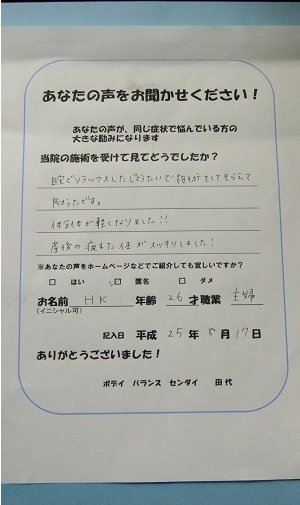 あなたの声をお聞かせください！
あなたの声が、同じ症状で悩んでいる方の
大きな励みになります
当院の施術を受けて見てどうでしたか？
自宅でリラックスしたじょうたいで施術をしてもらえて
良かったです。
体全体が軽くなりました!!
産後の疲れた体がスッキリしました！
※あなたの声をホームページなどでご紹介しても宜しいですか？
□ はい □ 匿名 □ ダメ
お名前 HK 年齢 26 才 職業 主婦
(イニシャル可)
記入日 平成 25 年 8 月 17 日
ありがとうございました！
ボディ バランス センダイ 田代